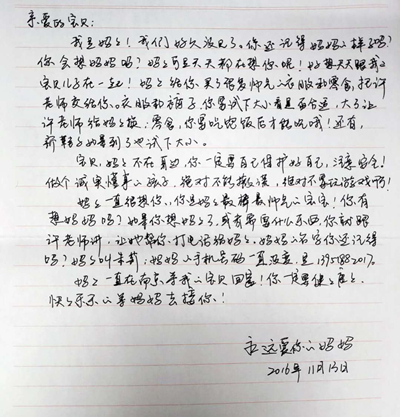 亲爱的宝贝:
我是妈妈!我们好久没见了。你还记得妈妈的样子吗?
你会想妈妈吗?妈妈可是天天都在想你呢!好想天天跟我的
宝贝儿子在一起!妈妈给你买了很多帅气的衣服和零食,托许
老师交给你。衣服和裤子你要试下大小看是否合适,大了让
许老师给妈妈换;零食,你要吃完饭后才能吃哦!还有,
新鞋子如果到了也试下大小。
宝贝,妈妈不在身边,你一定要自己保护好自己,注意安全!
做个诚实懂事的孩子,绝对不能撒谎,绝对不要玩游戏啊!
妈妈一直很想你,你是妈妈最棒最帅气的宝宝!你有
想妈妈吗?如果你想妈妈了,或有需要什么东西,你就跟
许老师讲,让她帮你打电话给妈妈。妈妈的名字你还记得
吗?妈妈叫朱莉;妈妈的手机号码一直没变,是
妈妈一直在南京等我的宝贝回家!你一定要健健康康、
快快乐乐的等妈妈去接你!
永远爱你的妈妈
2016年11月13日